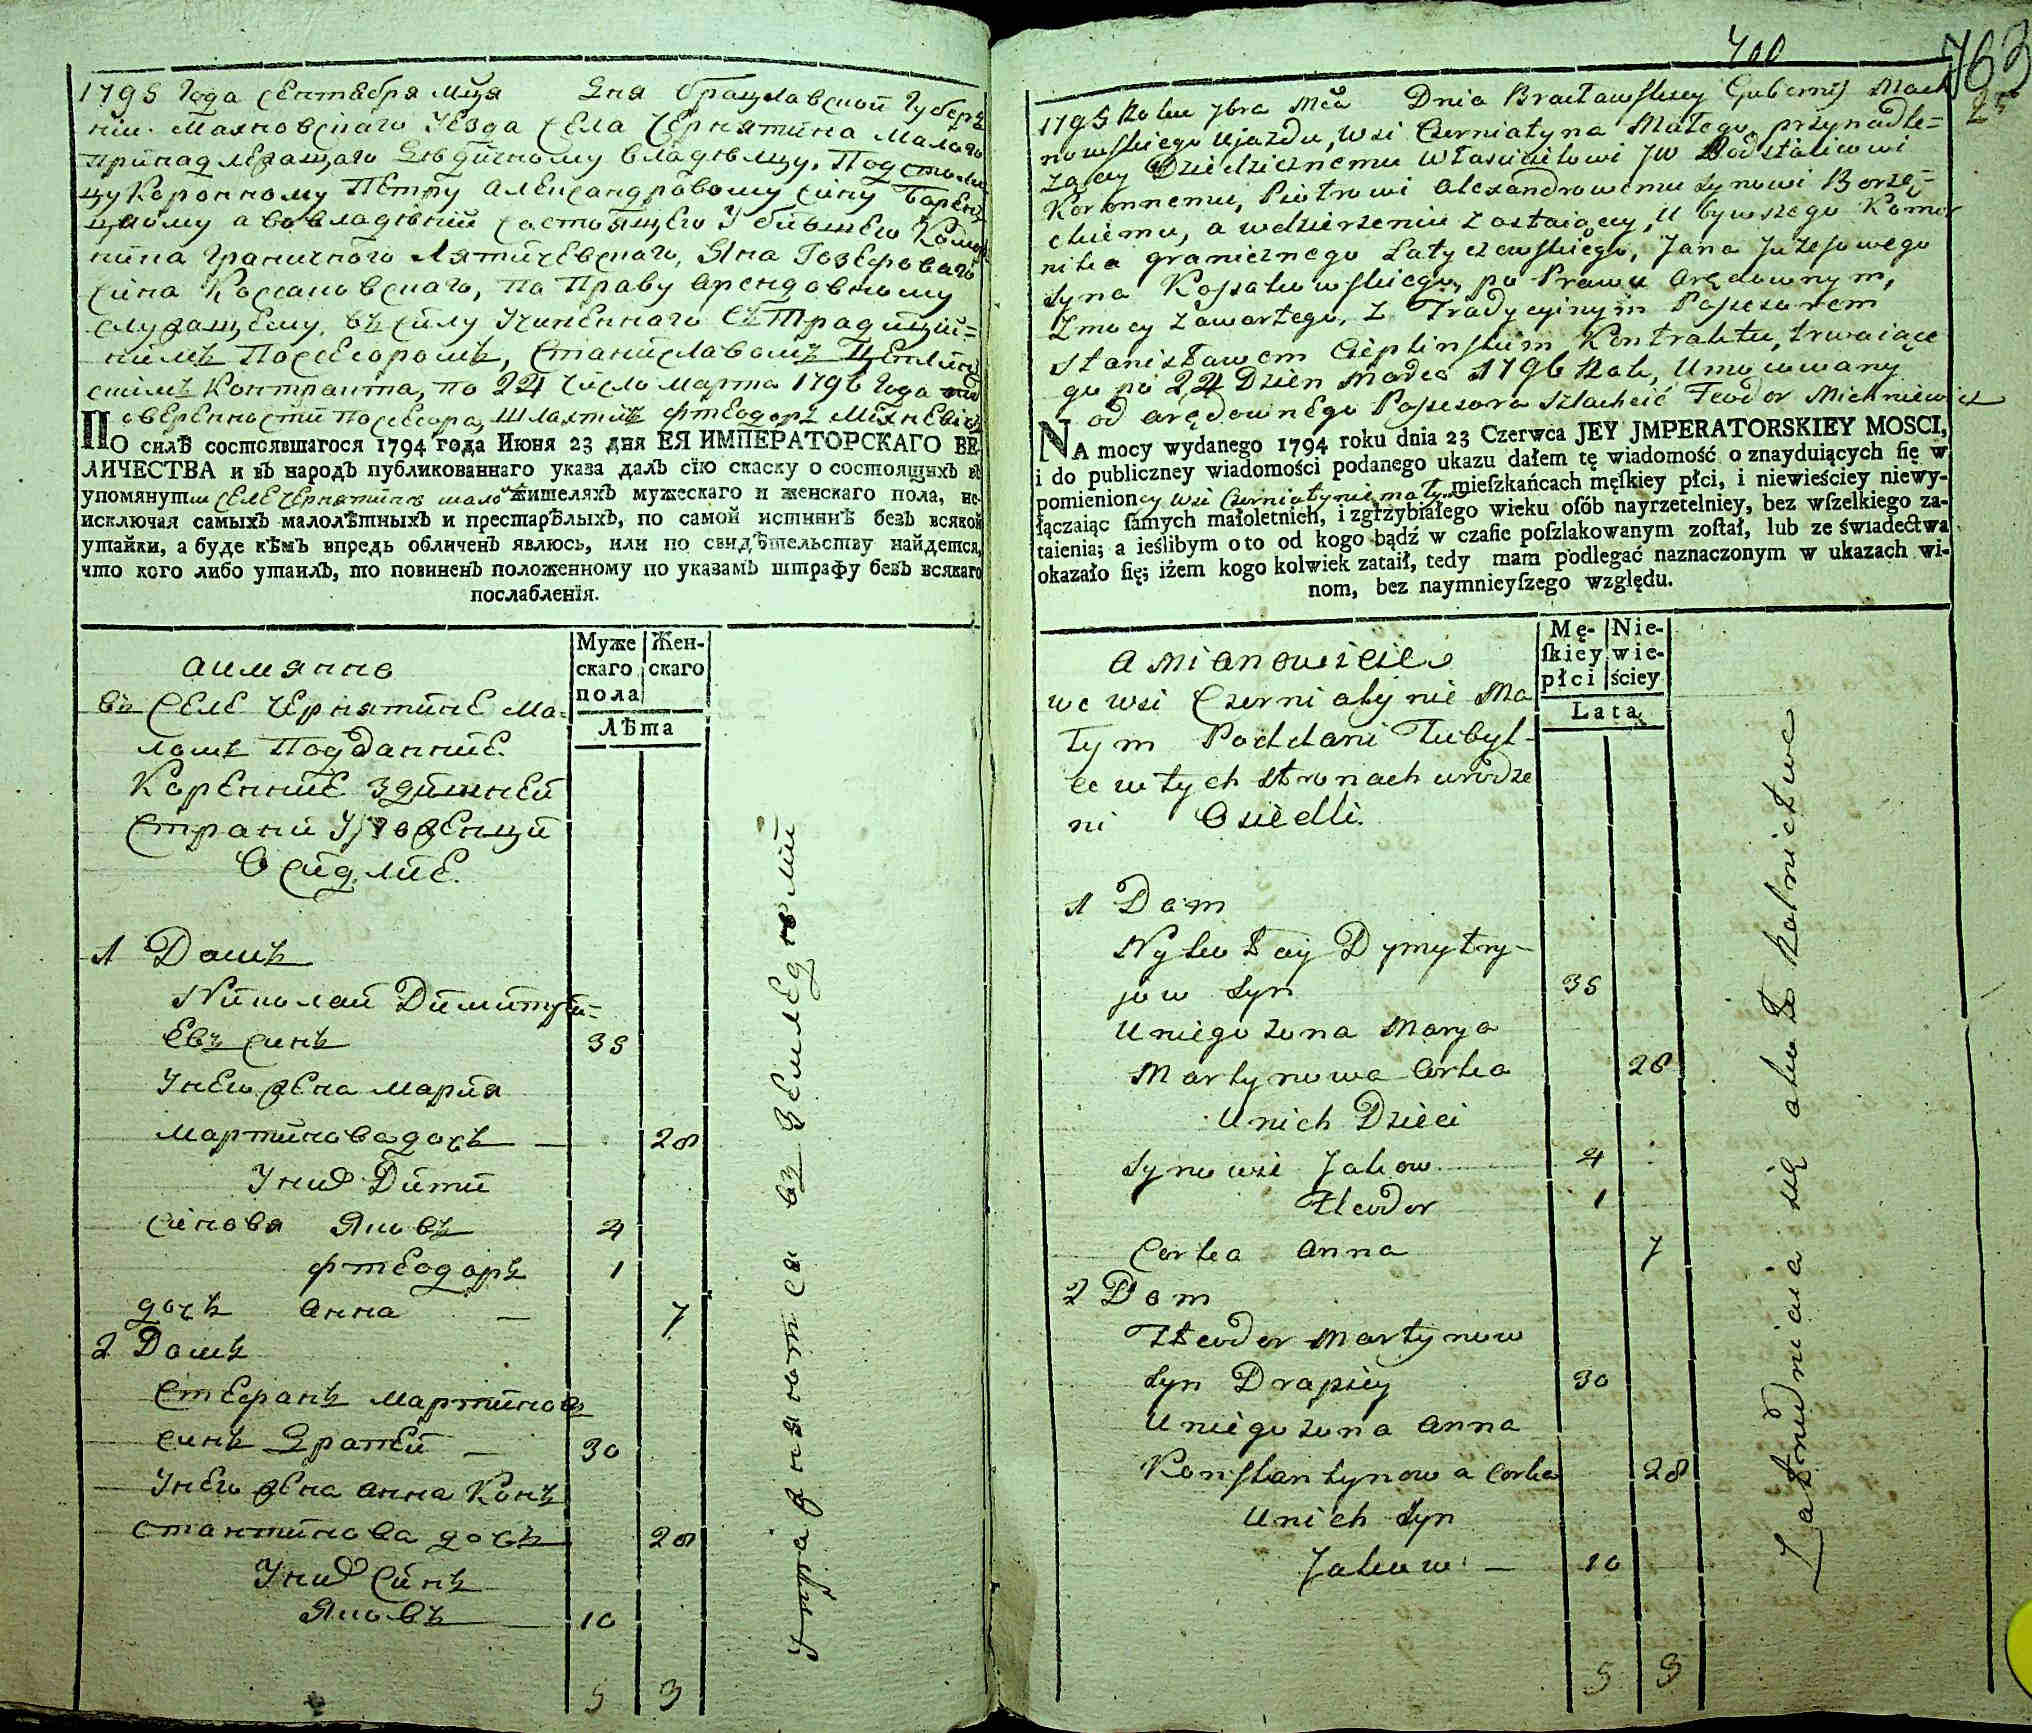 1795 Года Сентября мця Дня Брацлавской Губер
нии Махновскаго Уезда Села Чернятина Малаго
принадлежащаго Дедичному владелцу, Подстоли
цу Коронному Петру Александровому сину
цкому а во владении состоящего У бившего Комор
ника Граничного Лятичевского, Яна Иозефоваго
Сина Коссаковскаго, по Праву арендовному
служащему, въ силу Учиненнаго съ Традиций=
нимъ Поссесоромъ, Станиславомъ
скимъ Контракта, по 24 число марта 1796 года
оверенности Поссесора, Шляхтичъ Фтеодоръ Михневичъ
ПО силѣ состоявшагося 1794 года Июня 23 дня ЕЯ ИМПЕРАТОРСКАГО ВЕ-
ЛИЧЕСТВА и въ народъ публикованнаго указа далъ сїю скаску о состоящихъ въ
упомянутом селе Чернятине мало жителяхъ мужескаго и женскаго пола, не
исключая самыхъ малолѣтныхъ и престарѣлыхъ, по самой истиннѣ безъ всякой
утайки, а буде кѣмъ впредь обличенъ явлюсь, или по свидѣтельству найдется,
что кого либо утаилъ, то повиненъ положенному по указамъ штрафу безъ всякаго
послабленїя.
Муже Жен-
скаго скаго
пола
Лѣта
аимянно
въ Селе Чернятине Ма-
ломъ Подданние
Коренние Здишней
Страни Уроженци
Осидлие.
1 Домъ
Николай Димитри=
евъ синъ 35
Унего жена Мария
Мартинова дочъ — 28
У них Дити
Синовя Яковъ 4
Фтеодоръ 1
дочъ Анна — 7
2 Домъ
Стефанъ Мартиновъ
синъ Драпей — 30
Унего жена анна Конъ
стантинова дочъ 28
Уних Синъ
Яковъ — 10
5 3
Упражняются въ Земледелии
700
763
25
1795 Roku 7bra Mca Dnia Bracławskiey Gubernij Mach
nowskiego Ujazdu, wsi Czerniatyna Małego, przynadle=
zący Dziedzicznemu własicielowi JW Podstoliemu
Koronnemu, Piotrowi Alexandrowemu synowi Borzę=
ckiemu, a w dzierzeniu zostaiący, U bywszego Komor
nika granicznego Latyczewskiego, Jana Juzefowego
Syna Kossakowskiego, po Prawu Arędownym,
z mocy zawartego, z Tradycyinym Possesorem
Stanisławem Cieplinskim Kontraktu, trwaiące
go po 24 Dzien Marca 1796 Roku, Umocowany
od arędownego Possesora Szlachcic Teodor Michniewicz
NA mocy wydanego 1794 roku dnia 23 Czerwca JEY JMPERATORSKIEY MOSCI,
i do publiczney wiadomości podanego ukazu dałem tę wiadomość o znayduiących ſię w
pomienioney wsi Czerniatynie małym mieſzkańcach męſkiey płci, i niewieściey niewy-
łączaiąc ſamych małoletnich, i zgrzybiałego wieku osób nayrzetelniey, bez wſzelkiego za-
taienia; a ieślibym oto od kogo bądź w czaſie poſzlakowanym zoſtał, lub ze świadectwa
okazało ſię; iżem kogo kolwiek zataił, tedy mam podlegać naznaczonym w ukazach wi-
nom, bez naymnieyſzego względu.
Mę- Nie-
ſkiey wie-
płci ściey
Lata
a Mianowicie
we wsi Czerniatynie Ma
łym Poddani Tubyl-
ce w tych stronach urodze
ni Osiedli.
1 Dom
Nykołay Dymytry-
jow syn 35
U niego zona Marya
Martynowa Corka 28
U nich Dzieci
Synowie Jakow 4
Fteodor 1
Corka Anna 7
2 Dom
Fteodor Martynow
syn Drapiey 30
U niego zona Anna
Konstantynowa Corka 28
U nich Syn
Jakow — 10
5 3
Zatrudniaia się około Rolnictwa